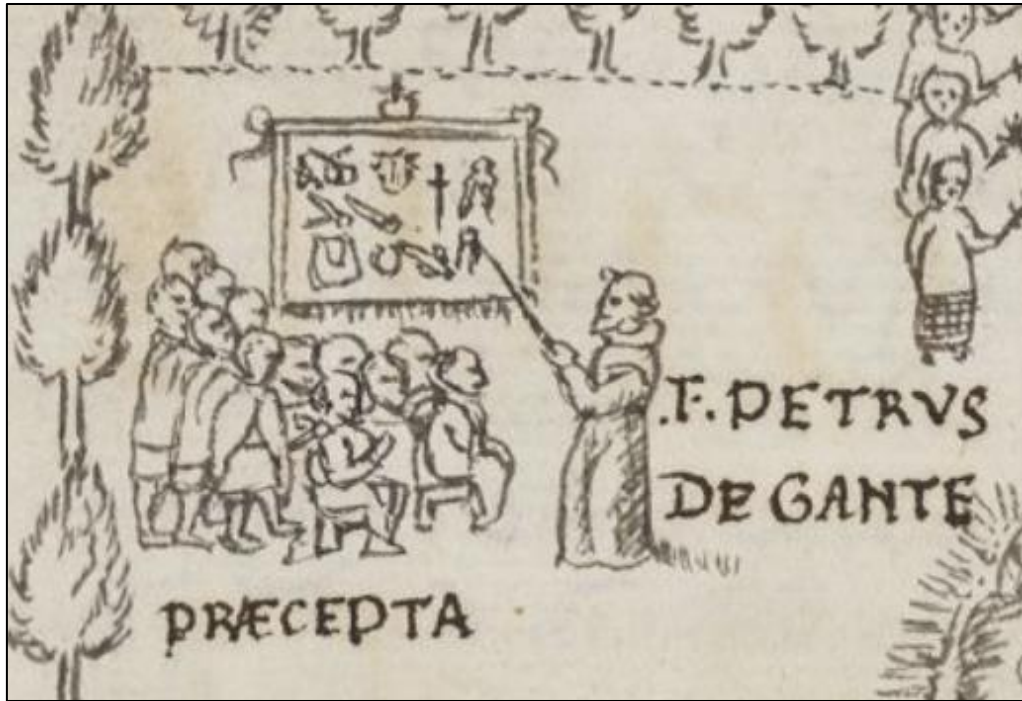 .F. PETRVS
DE GANTE
PRÆCEPTA